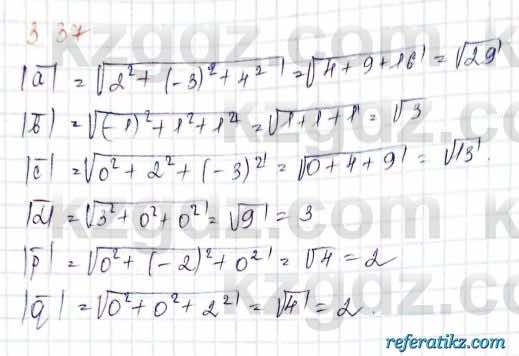 3 37
|a̅| = √(2² + (-3)² + 4²) = √(4 + 9 + 16) = √29
|b̅| = √((-1)² + 1² + 1²) = √(1 + 1 + 1) = √3
|c̅| = √(0² + 2² + (-3)²) = √(0 + 4 + 9) = √13.
|d̅| = √(3² + 0² + 0²) = √9 = 3
|p̅| = √(0² + (-2)² + 0²) = √4 = 2
|q̅| = √(0² + 0² + 2²) = √4 = 2.
kzgdz.com
referatikz.com